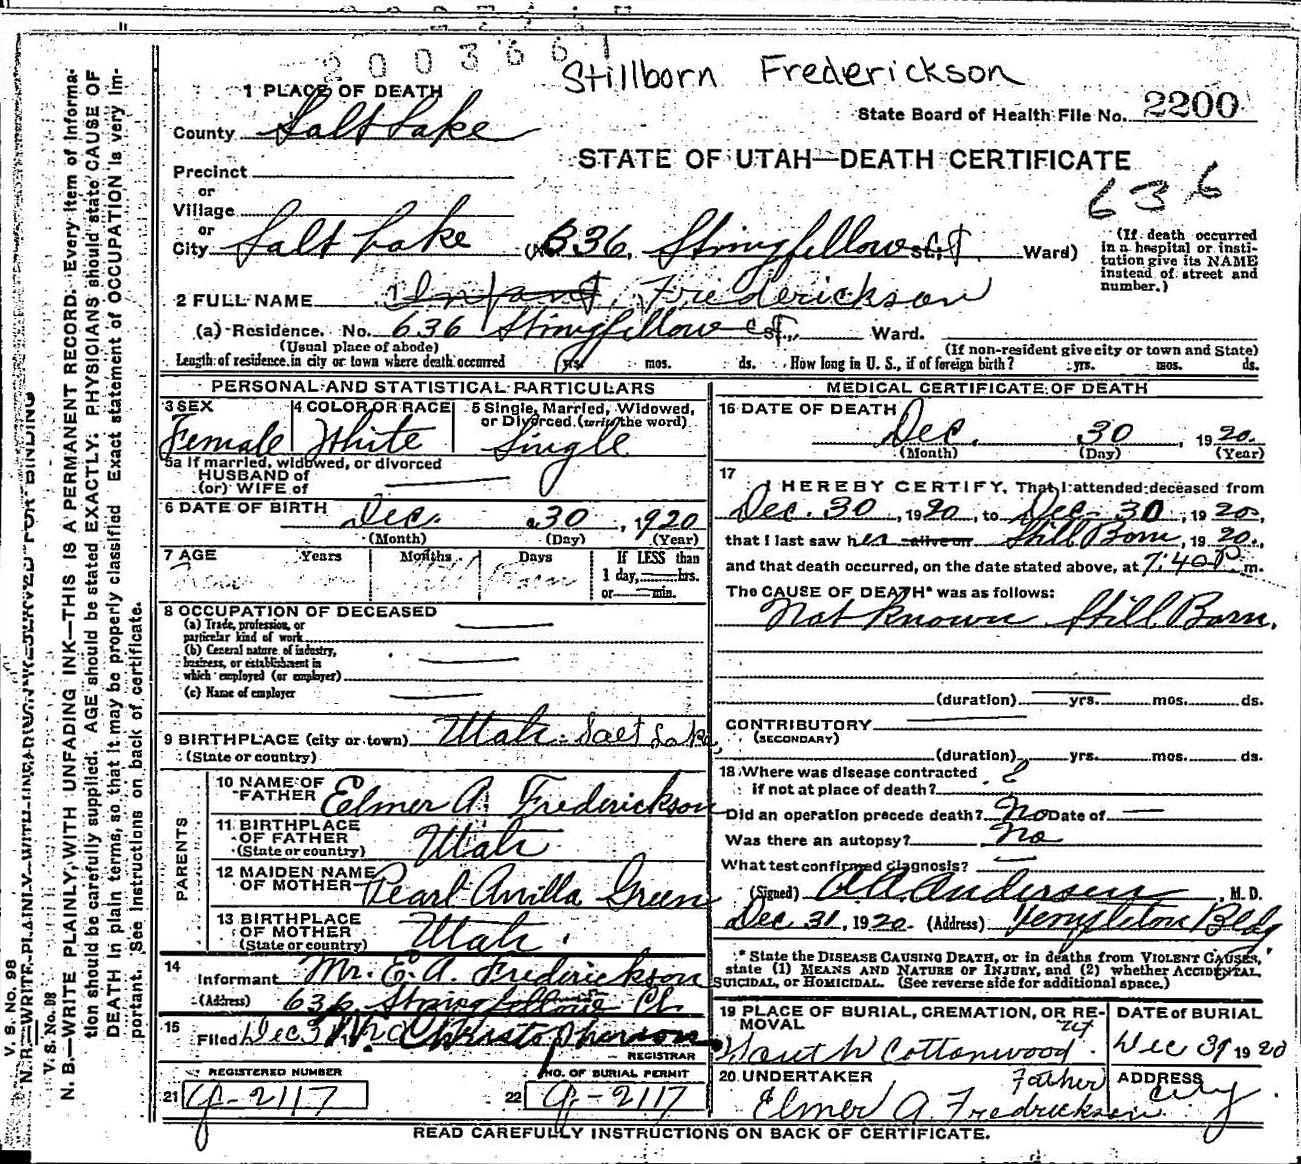 2003661
Stillborn Frederickson
1 PLACE OF DEATH
State Board of Health File No. 2200
County Salt Lake
STATE OF UTAH—DEATH CERTIFICATE
Precinct
or
Village
636
or
City Salt Lake (No. 636, Stringfellow St. Ct. Ward)
(If death occurred
in a hospital or insti-
tution give its NAME
instead of street and
number.)
2 FULL NAME Infant, Frederickson
(a) Residence. No. 636 Stringfellow Ct. St., Ward.
(Usual place of abode) (If non-resident give city or town and State)
Length of residence in city or town where death occurred yrs. mos. ds. How long in U. S., if of foreign birth? yrs. mos. ds.
PERSONAL AND STATISTICAL PARTICULARS
3 SEX Female
4 COLOR OR RACE White
5 Single, Married, Widowed,
or Divorced. (write the word)
Single
5a If married, widowed, or divorced
HUSBAND of
(or) WIFE of
6 DATE OF BIRTH Dec. 30, 1920
(Month) (Day) (Year)
7 AGE Years Months Days
Still Born
If LESS than
1 day, hrs.
or min.
8 OCCUPATION OF DECEASED
(a) Trade, profession, or
particular kind of work
(b) General nature of industry,
business, or establishment in
which employed (or employer)
(c) Name of employer
9 BIRTHPLACE (city or town) Utah. Salt Lake,
(State or country)
PARENTS
10 NAME OF
FATHER Elmer A. Frederickson
11 BIRTHPLACE
OF FATHER
(State or country) Utah.
12 MAIDEN NAME
OF MOTHER Pearl Arvilla Green
13 BIRTHPLACE
OF MOTHER
(State or country) Utah.
14
Informant Mr. E. A. Frederickson
(Address) 636 Stringfellow Ct.
15
Filed Dec 31 Christopherson
REGISTRAR
REGISTERED NUMBER
21 G-2117
NO. OF BURIAL PERMIT
22 G-2117
MEDICAL CERTIFICATE OF DEATH
16 DATE OF DEATH
Dec. 30, 1920.
(Month) (Day) (Year)
17
I HEREBY CERTIFY, That I attended deceased from
Dec. 30, 1920, to Dec. 30, 1920,
that I last saw her alive on Still Born, 1920.,
and that death occurred, on the date stated above, at 7:40 P. m.
The CAUSE OF DEATH* was as follows:
Not known Still Born.
(duration) yrs. mos. ds.
CONTRIBUTORY
(SECONDARY)
(duration) yrs. mos. ds.
18 Where was disease contracted
if not at place of death? ?
Did an operation precede death? No Date of —
Was there an autopsy? No
What test confirmed diagnosis? —
(Signed) A. A. Andersen, M. D.
Dec 31, 1920. (Address) Templeton Bldg
* State the DISEASE CAUSING DEATH, or in deaths from VIOLENT CAUSES,
state (1) MEANS AND NATURE OF INJURY, and (2) whether ACCIDENTAL,
SUICIDAL, or HOMICIDAL. (See reverse side for additional space.)
19 PLACE OF BURIAL, CREMATION, OR RE-
MOVAL
South Cottonwood
DATE OF BURIAL
Dec 31 1920
20 UNDERTAKER Father
Elmer A. Fredrickson
ADDRESS
City
READ CAREFULLY INSTRUCTIONS ON BACK OF CERTIFICATE.
V. S. No. 98
N. B.—WRITE PLAINLY, WITH UNFADING INK—THIS IS A PERMANENT RECORD. Every item of informa-
tion should be carefully supplied. AGE should be stated EXACTLY. PHYSICIANS should state CAUSE OF
DEATH in plain terms, so that it may be properly classified. Exact statement of OCCUPATION is very im-
portant. See instructions on back of certificate.